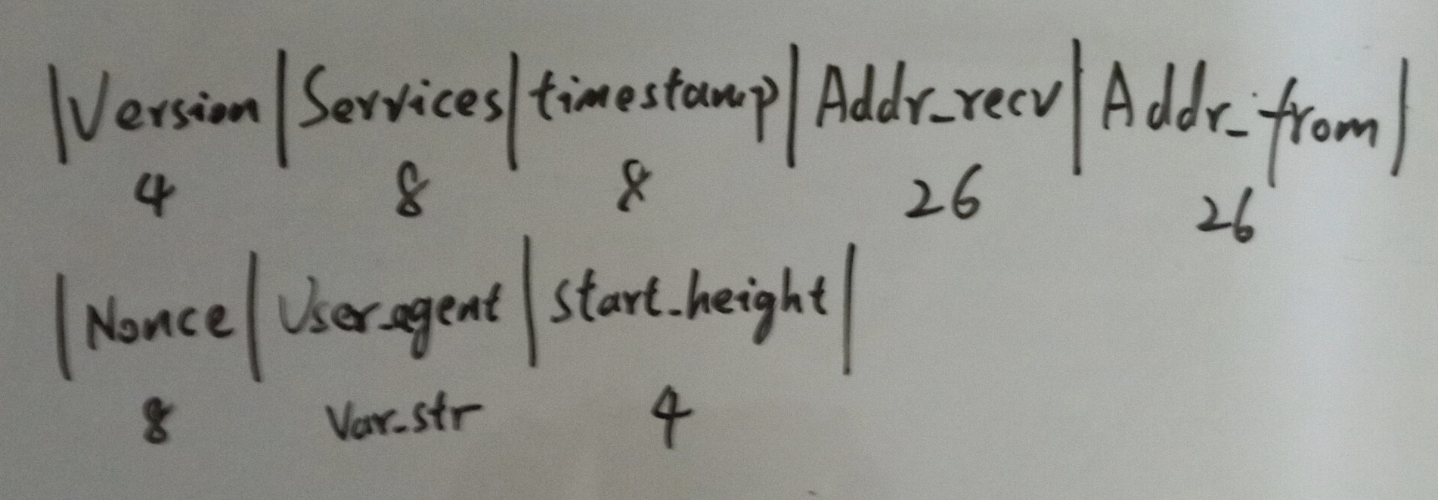 |Version|Services|timestamp|Addr_recv|Addr_from|
4 8 8 26 26
|Nonce|User_agent|start_height|
8 Var_str 4